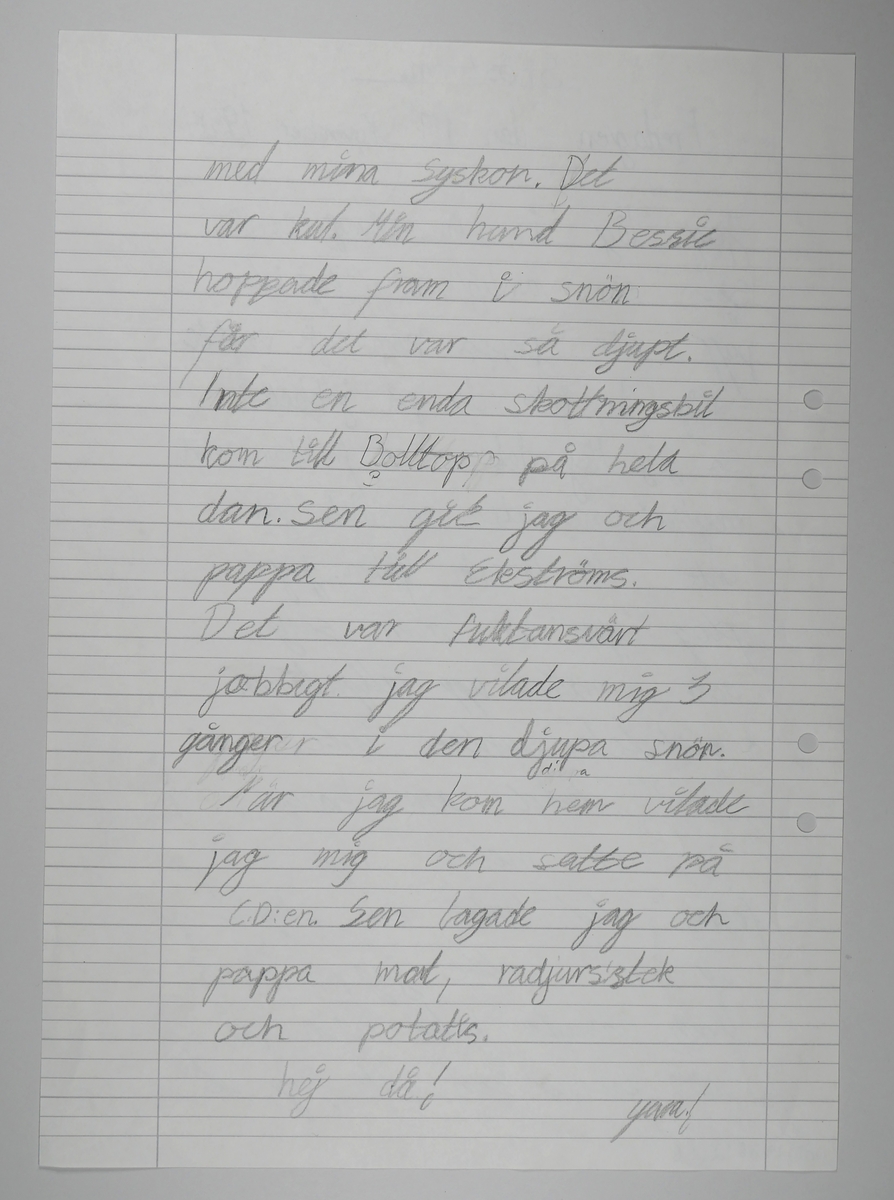 med mina Syskon. Det
var kul. Min hund Bessie
hoppade fram i snön
får det var så djupt.
Inte en enda skottningsbil
kom till Bolltopp på hela
dan. Sen gick jag och
pappa till Ekströms.
Det var fuktansvärt
jobbigt. jag vilade mig 3
gånger i den djupa snön.
När jag kom hem vilade
jag mig och satte på
C.D:en. Sen lagade jag och
pappa mat, rådjursstek
och potatis.
hej då!